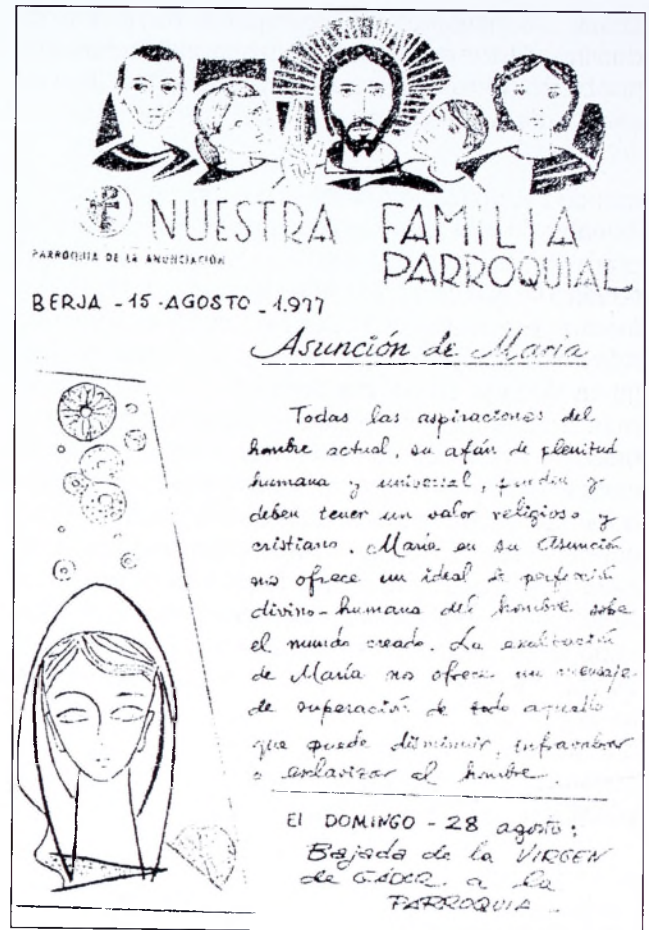 NUESTRA FAMILIA
PARROQUIAL
PARROQUIA DE LA ANUNCIACIÓN
BERJA - 15 - AGOSTO - 1.977
Asunción de María
Todas las aspiraciones del
hombre actual, su afán de plenitud
humana y universal, pueden y
deben tener un valor religioso y
cristiano. María en su Asunción
nos ofrece un ideal de perfección
divino-humana del hombre sobre
el mundo creado. La exaltación
de María nos ofrece un mensaje
de superación de todo aquello
que puede disminuir, infravalorar
o esclavizar al hombre.
El DOMINGO - 28 agosto:
Bajada de la VIRGEN
de GÁDOR a la
PARROQUIA